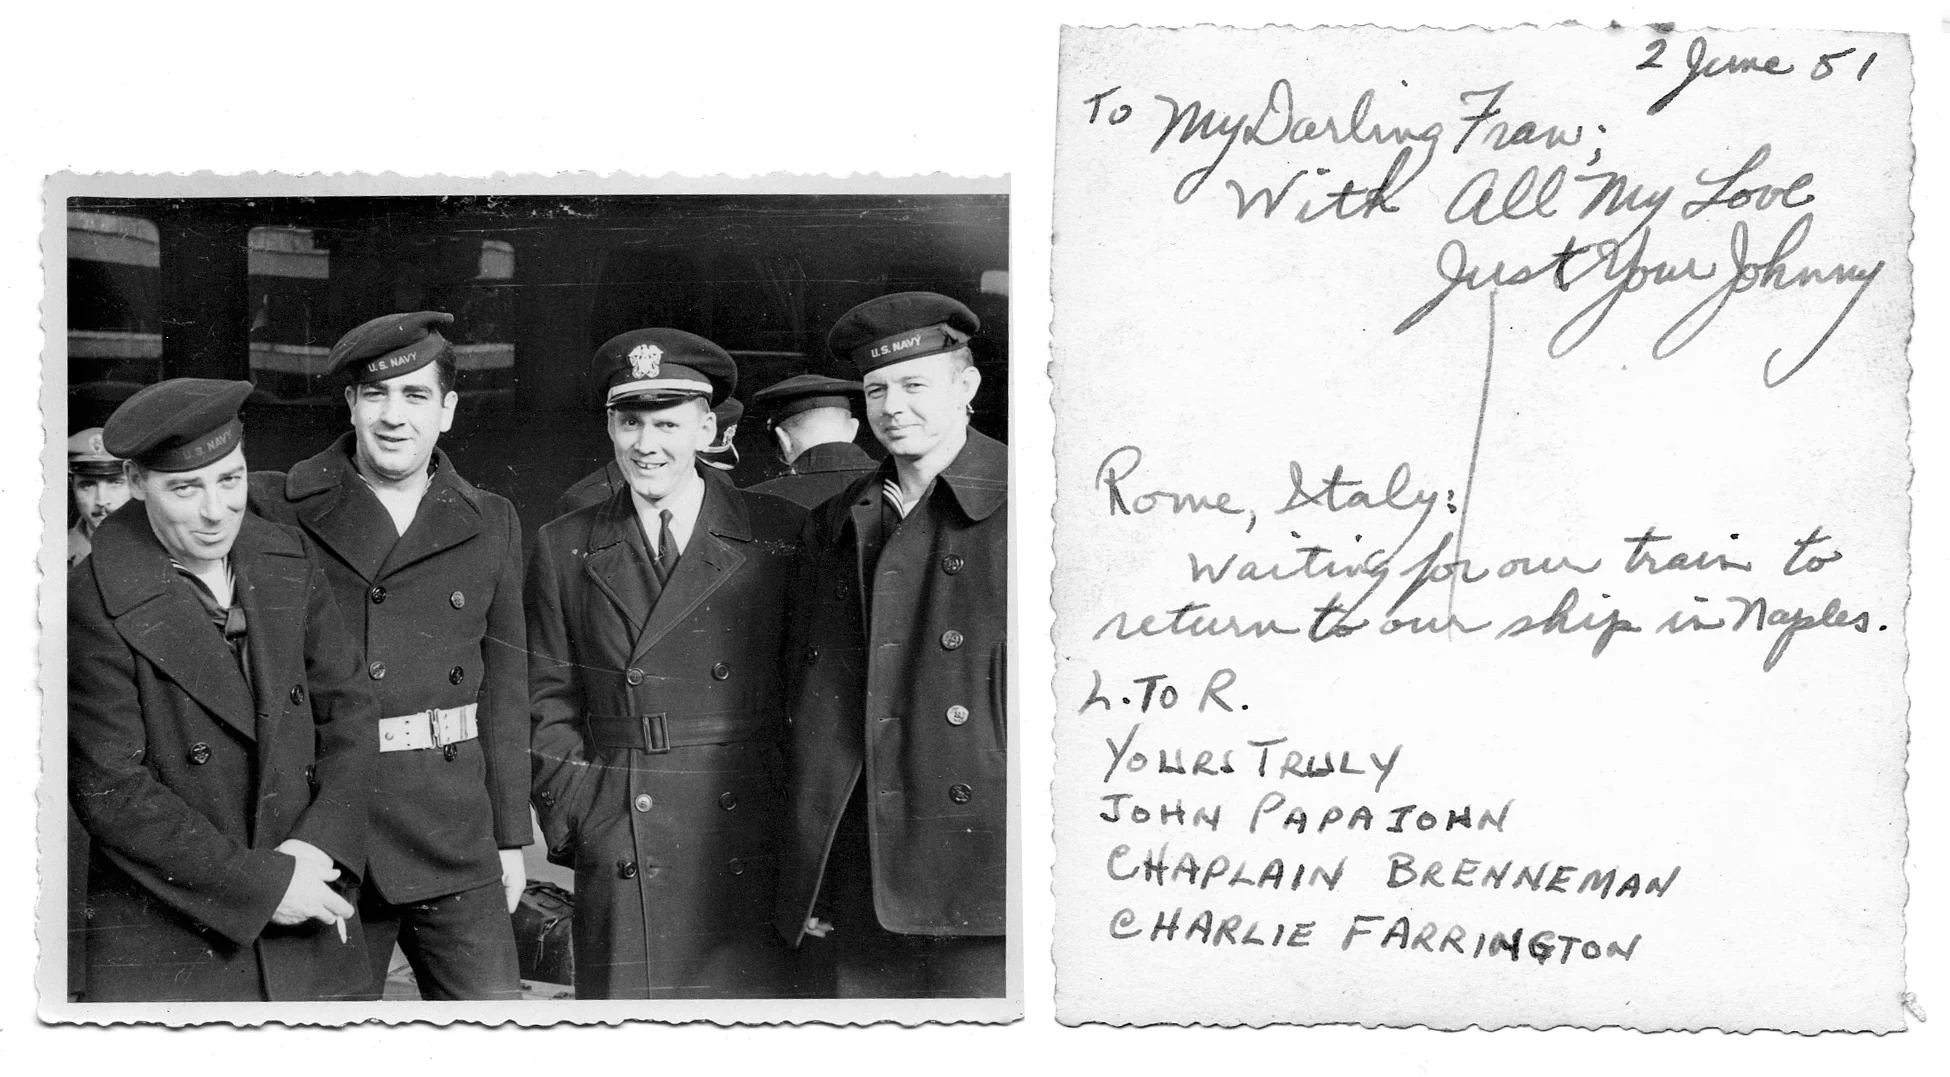 U.S. NAVY
U.S. NAVY
U.S. NAVY
2 June 51
To My Darling Fran;
With All My Love
Just Your Johnny
Rome, Italy:
Waiting for our train to
return to our ship in Naples.
L. TO R.
YOURS TRULY
JOHN PAPAJOHN
CHAPLAIN BRENNEMAN
CHARLIE FARRINGTON